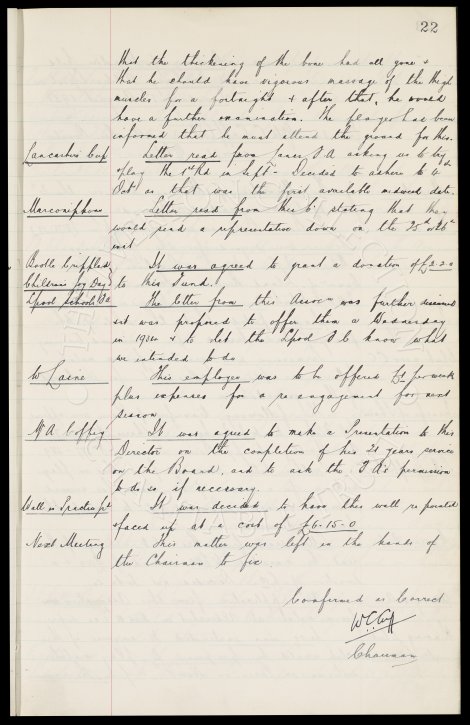 22
that the thickening of the bone had all gone &
that he should have vigorous massage of the thigh
muscles for a fortnight & after that, he would
have a further examination. The player has been
informed that he must attend the ground for this.
Lancashire Cup Letter read from Lancs F A asking us to try &
play the 1st Rd in Sept - Decided to adhere to 4
Oct as that was the first available midweek date.
Marconiphone Letter read from this Co stating that they
would send a representative down on the 25 or 26th
inst
Bootle Crippled It was agreed to grant a donation of £2-2-0
Childrens Joy Day to this Fund.
Lpool Schools FA The letter from this Assocn was further discussed
& it was proposed to offer them a Wednesday
in & to let the Lpool F C know what
we intended to do
W Laine This employee was to be offered per week
plus expenses for a re-engagement for next
season
Mr A Coffey It was agreed to make a Presentation to this
Director on the completion of his 21 years service
on the Board, and to ask the F A's permission
to do so, if necessary.
Wall in St It was decided to have this wall repaired
& faced up at a cost of £6-15-0
Next Meeting This matter was left in the hands of
the Chairman to fix
Confirmed as Correct
W C Cuff
Chairman